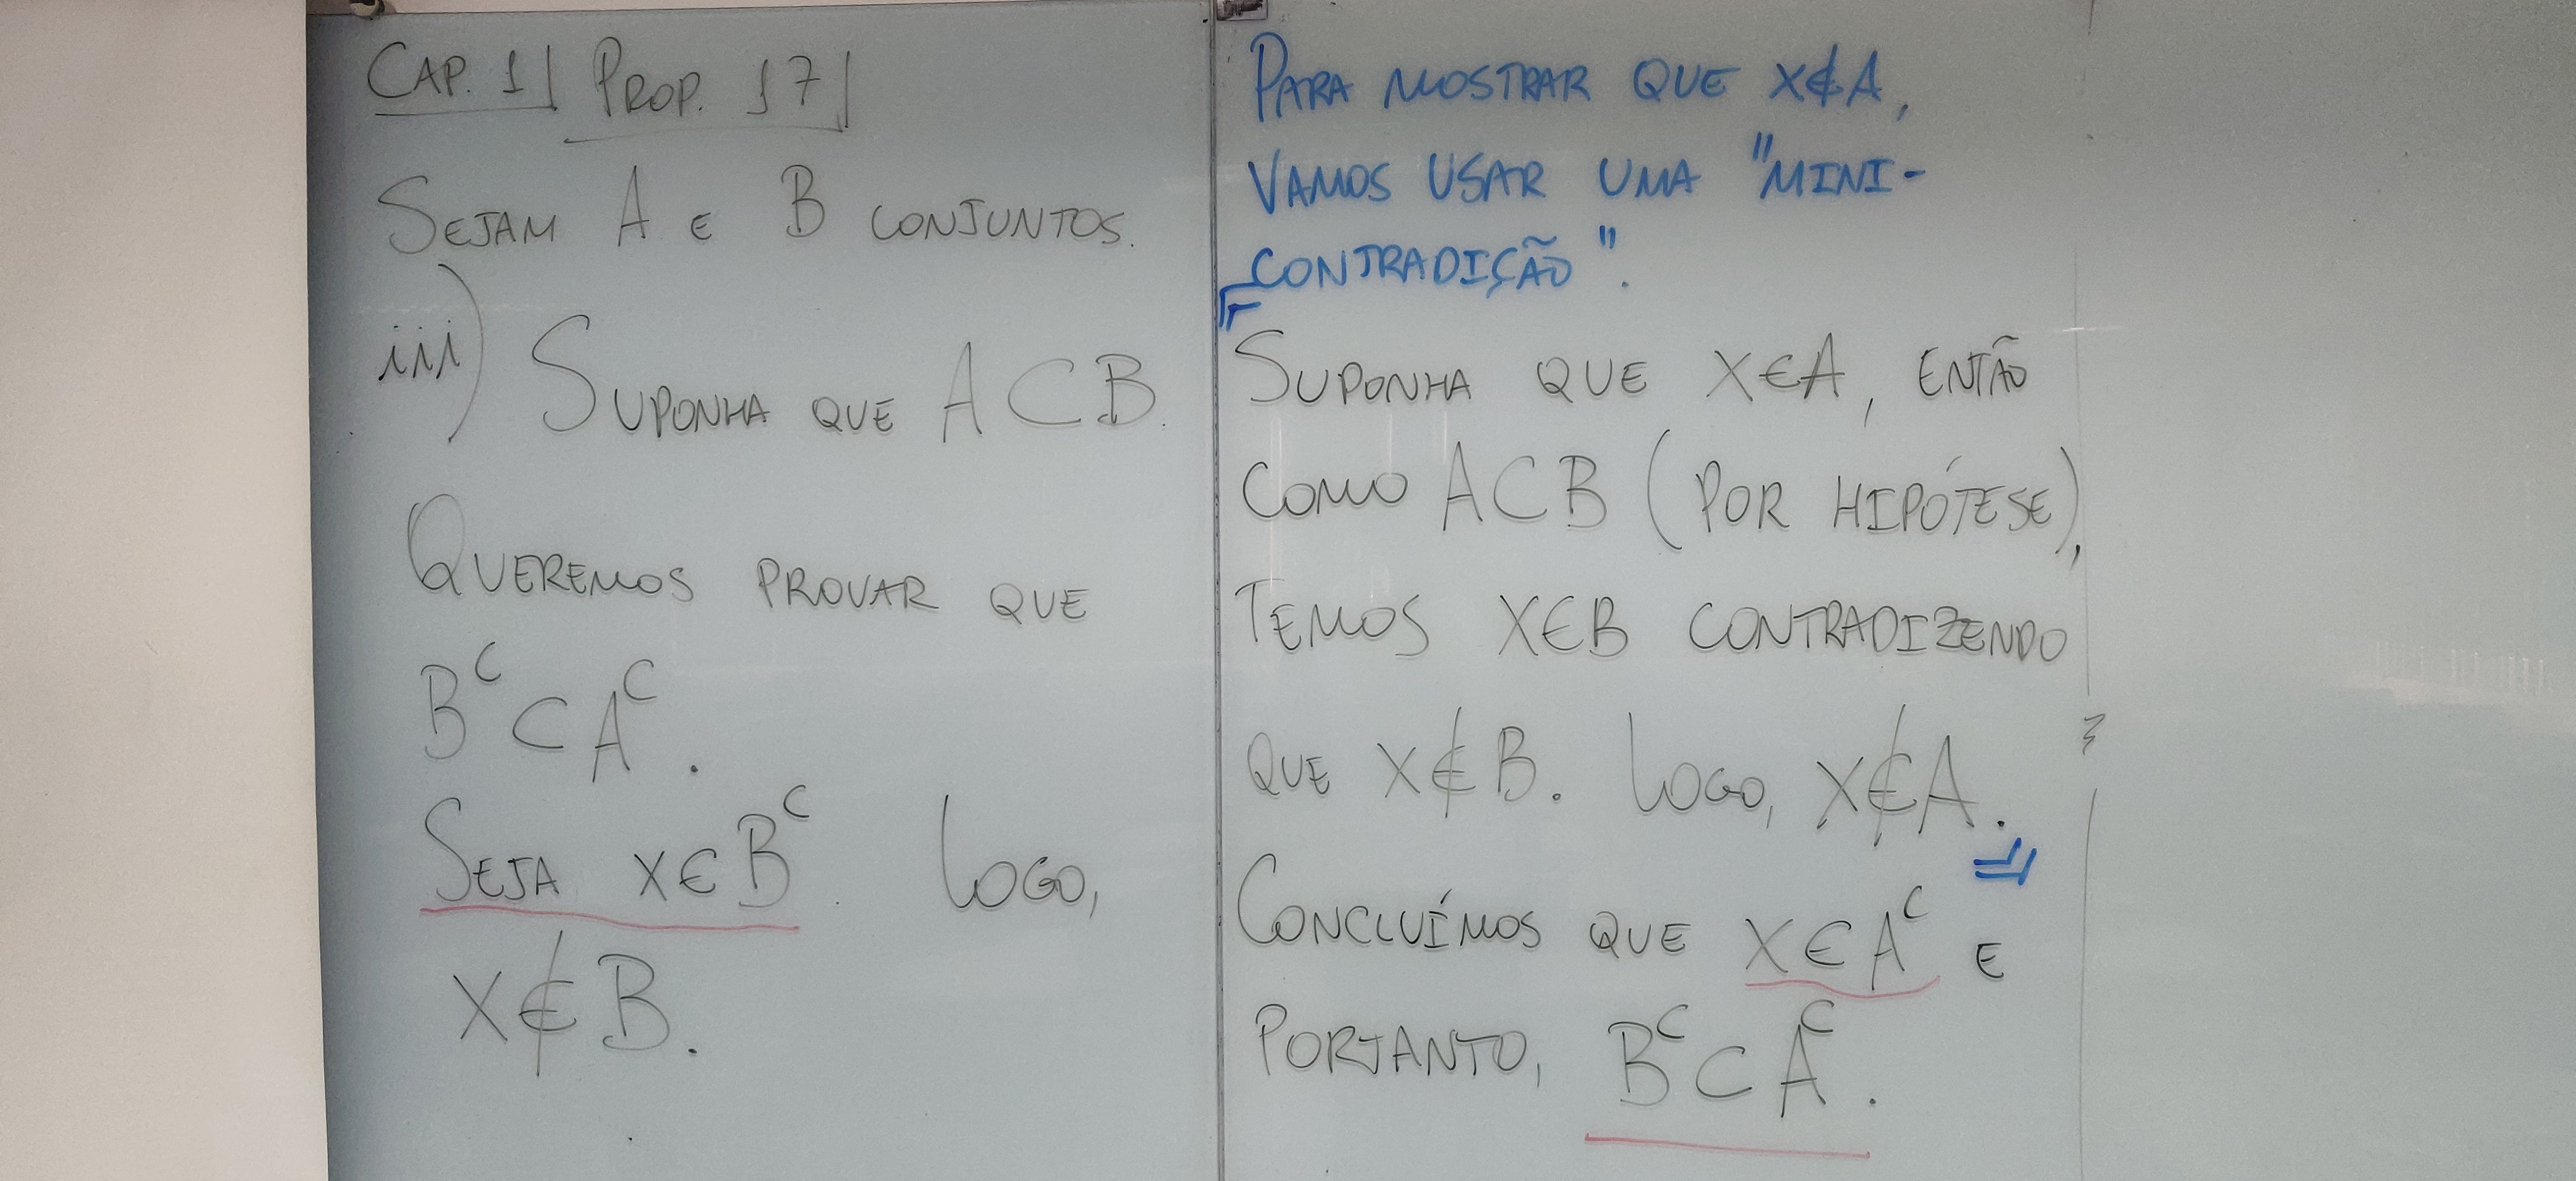 CAP. 1 PROP. 17
SEJAM A E B CONJUNTOS.
iii) SUPONHA QUE A ⊂ B.
QUEREMOS PROVAR QUE
B^C ⊂ A^C.
SEJA X ∈ B^C. LOGO,
X ∉ B.
PARA MOSTRAR QUE X ∉ A,
VAMOS USAR UMA "MINI-
CONTRADIÇÃO".
SUPONHA QUE X ∈ A, ENTÃO
COMO A ⊂ B (POR HIPÓTESE),
TEMOS X ∈ B CONTRADIZENDO
QUE X ∉ B. LOGO, X ∉ A.
CONCLUÍMOS QUE X ∈ A^C E
PORTANTO, B^C ⊂ A^C.